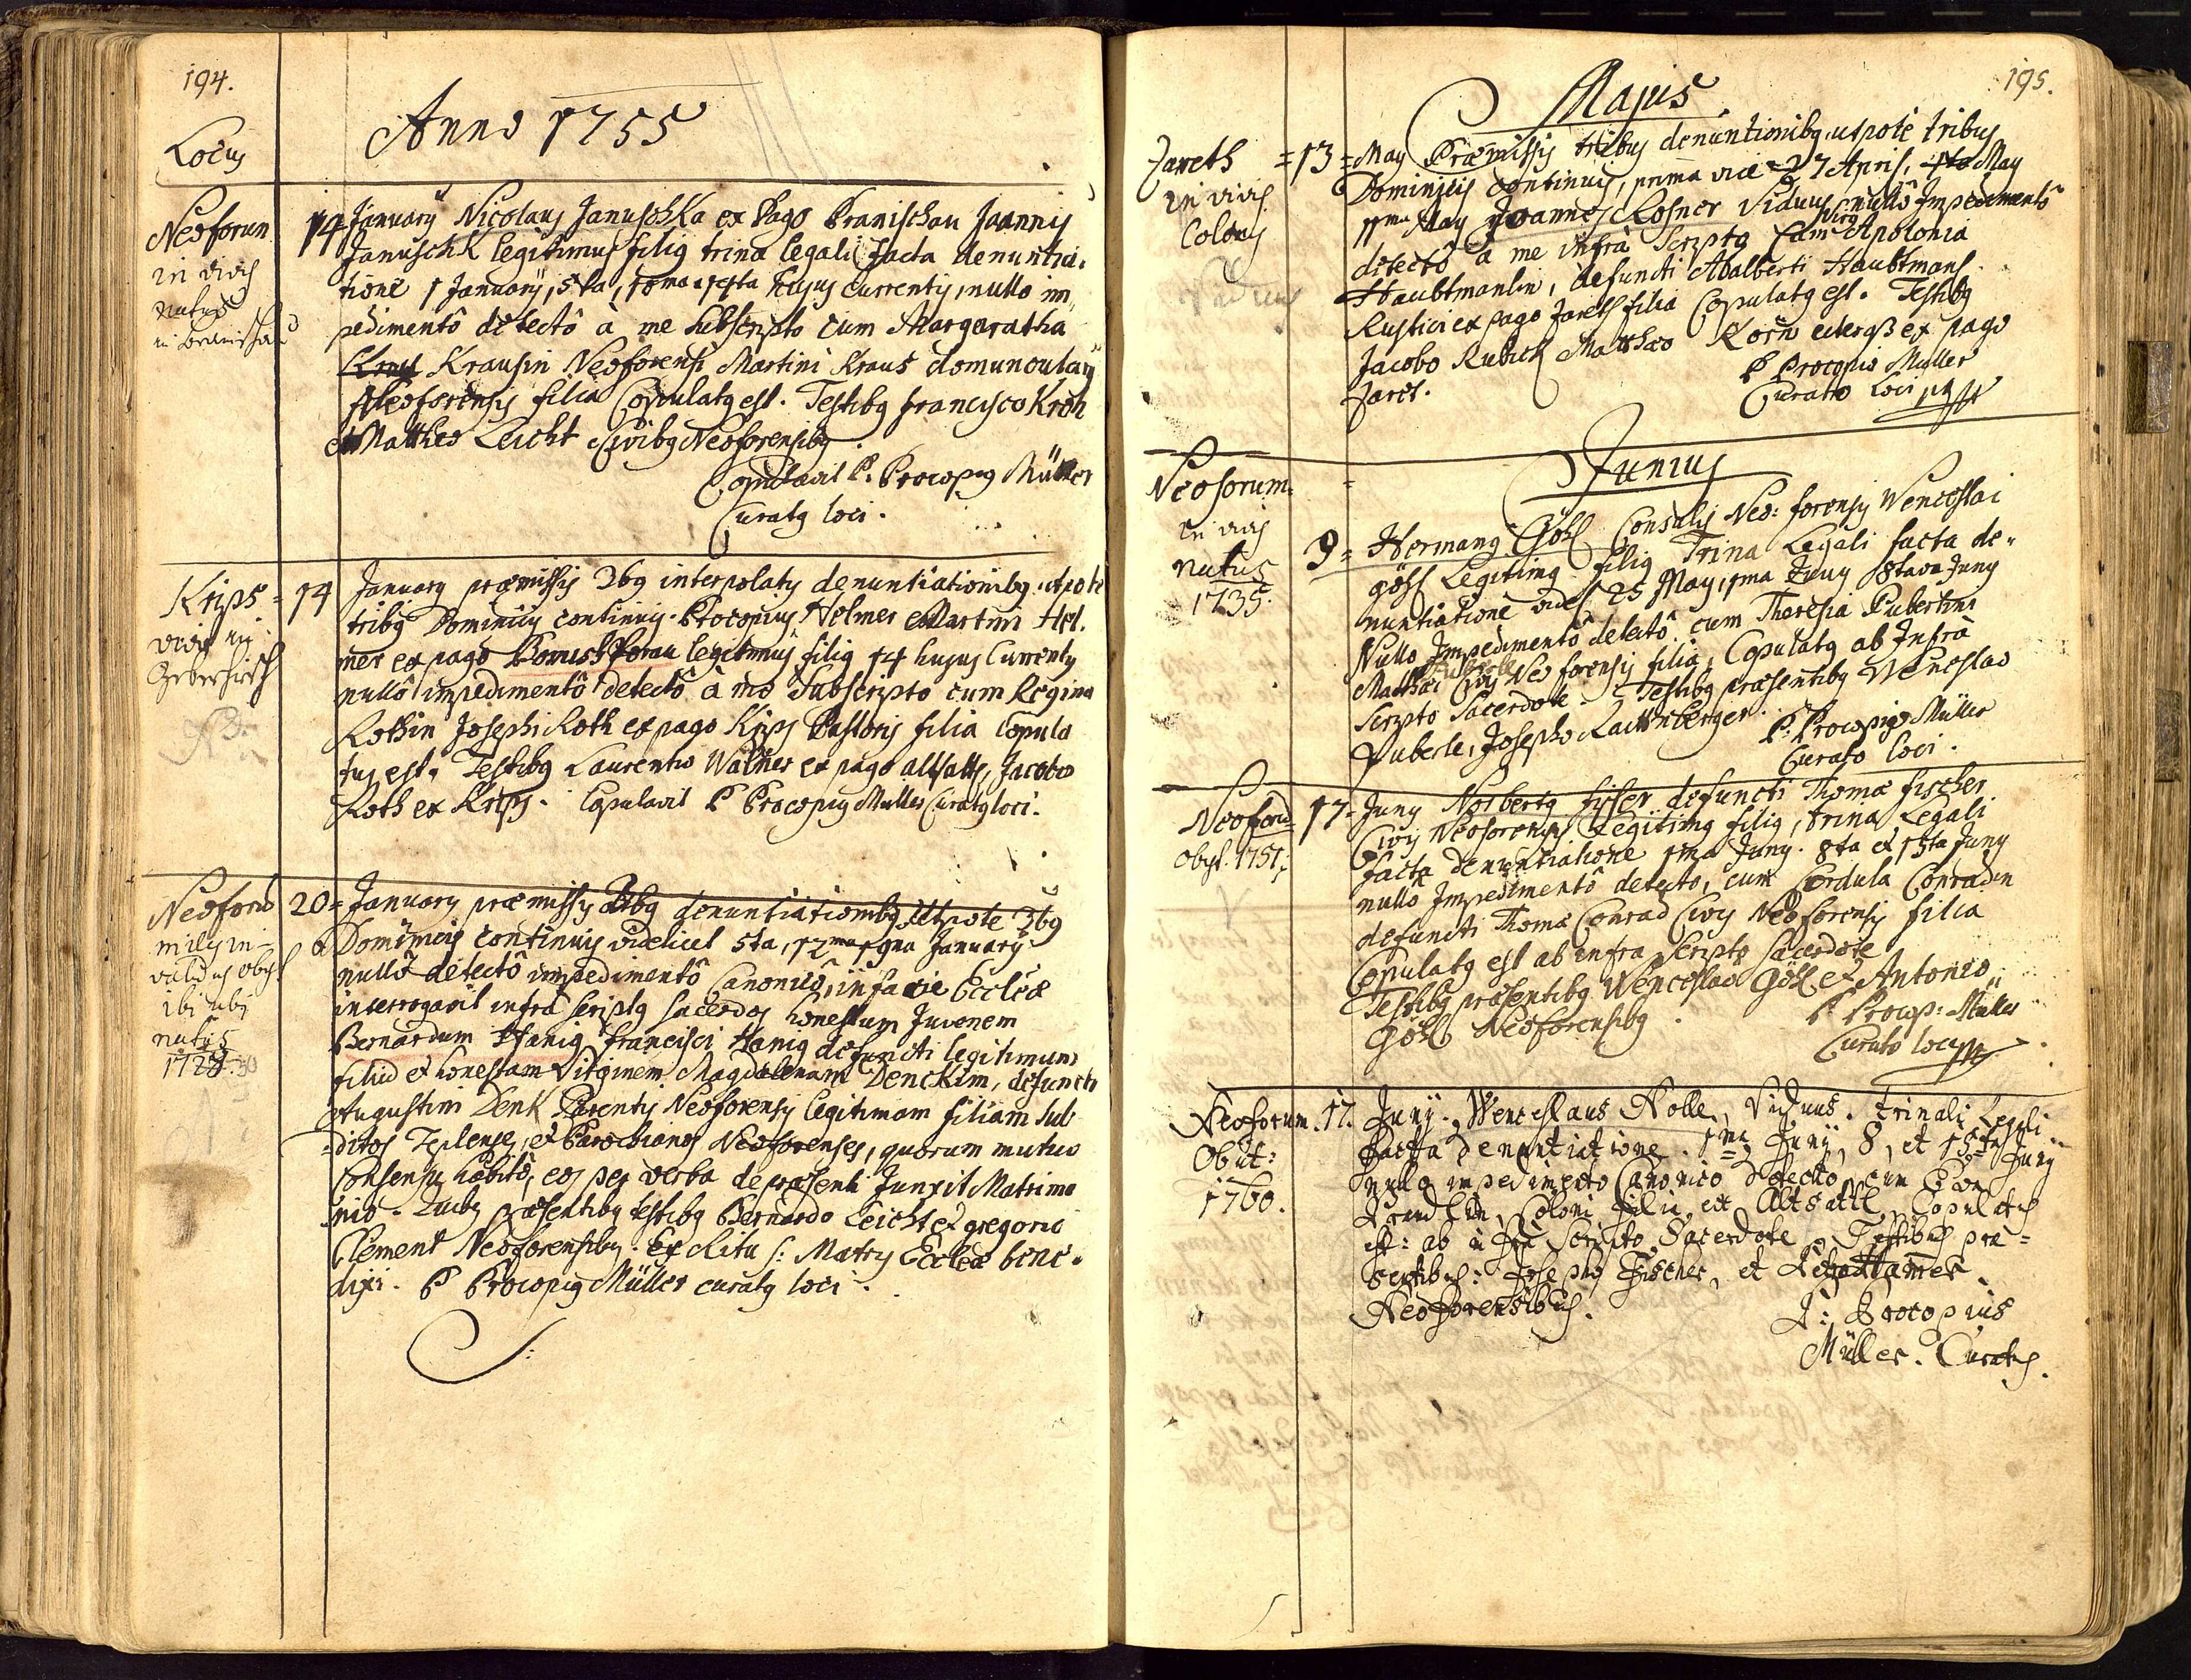 194.
Locus
Anno 1755
Neoforum
in vivis
natus
14 January Nicolaus Januschka ex Pago Pranischau Joannis
Januschk legitimus filius trina legali facta denuntia-
tione 1 January, 5ta, huius currentis, nullo im
pedimentô detectô à me subscripto cum Margaratha
Krausin Neoforensi Martini Kraus domuncularij
Neoforensis filia Copulatus est. Testibus Francisco Kroh
et Mattheo Leicht Civibus Neoforensibus.
Copulavit P. Procopius Müller
Curatus loci.
Krips = 14 January præmissis 3bus interpolatis denuntiationibus utpote
tribus Dominicis continuis Procopius Helmer Martini Hel.
mer ex pago legitimus filius 14 hujus Currentis
nullô impedimentô detectô à me Subscripto cum Regina
Rothin Josephi Roth ex pago Krips Pastoris filia Copula
tus est. Testibus Laurentio Walner ex pago altsattl, Jacobo
Roth ex Krips. Copulavit P Procopius Muller Curatus loci.
Neoforo
natus
20 = January præmissis 3bus denuntiationibus utpote 3bus
Dominicis continuis videlicet 5ta, 12ma 19na January
nullô detectô impedimentô Canonicô, in facie Eccleæ
interrogavit infra scriptus sacerdos honestum Juvenem
Bernardum Hanig Francisci Hanig defuncti legitimum
filiu et honestam Virginem Magdalenam Denckin, defuncti
Augustini Denk Parentis Neoforensis legitimam filiam sub
=ditos Teplenses, et Parochianos Neoforenses, quorum mutuo
Consensu habitô, eos per verba de præsenti Junxit Matrimo
nio. præsentibus testibus Bernardo Leicht et gregorio
Clement Neoforensibus. Ex Ritu S: Matris Eccleæ bene-
dixi. P Procopius Müller curatus loci.
195.
Majus
Jareth
in vivis
Colonus
= 13 = May Præmissis tribus denuntionibus utpote tribus
Dominicis continuis, prima vice 27 April, 4ta May
11ma May Joannes Rosner Viduus nullô Impedimentô
detectô à me infrà Scripto cum virg Apolonia
Haubtmanlin, defuncti Adalberti Haubtmanl
Rustici ex pago Jareth filia Copulatus est. Testibus
Jacobo Rubick Matthæo Korn ex pago
Jaret.
P Procopio Muller
Curato Loci
Junius
Neoforum.
in vivis
natus
1735.
9 = Hermanus Göhl Consulis Neo: forensis Wenceslai
göhl Legitimus filius Trina Legali facta de-
nuntiatione 25 May, 1ma Juny 8tava Juny
Nullo Impedimentô detectô. cum Theresia Puberlin
Matthæi Civis Neoforensis filia, Copulatus ab Infrà
Scripto Sacerdote. Testibus præsentibus Wenceslao
Puberle, Josepho Raittenberger.
P. Procopio Müller
Curato loci.
Neoforo
obyt. 1757.
17 = Juny Norbertus fischer defuncti Thomæ fischer
Civis Neoforensis Legitimus filius, trina Legali
facta denuntiatione 1ma Juny. 8ta et 15ta Juny
nullo Impedimentô detecto, cum Cordula Conradin
defuncti Thomæ Conrad Civis Neoforensis filia
Copulatus est ab infra Scripto Sacerdote
Testibus præsentibus Wenceslao Göhl et Antonio
Göhl Neoforensibus.
P Procop: Müller
Curato loci
Neoforum.
Obiit:
1760.
17. Junij. Wenceslaus Nolle, Viduus. trinali Legali
facta denuntiatione. 1ma Junij, 8, et 15ta Juny
nullo impedimento Canonico detecto, cum
Coloni filia ex Altsattl, Copulatus
est: ab infra Scripto Sacerdote. Testibus præ=
sentibus: Josepho Fischer, et
Neoforensibus.
P: Procopius
Müller. Curatus.